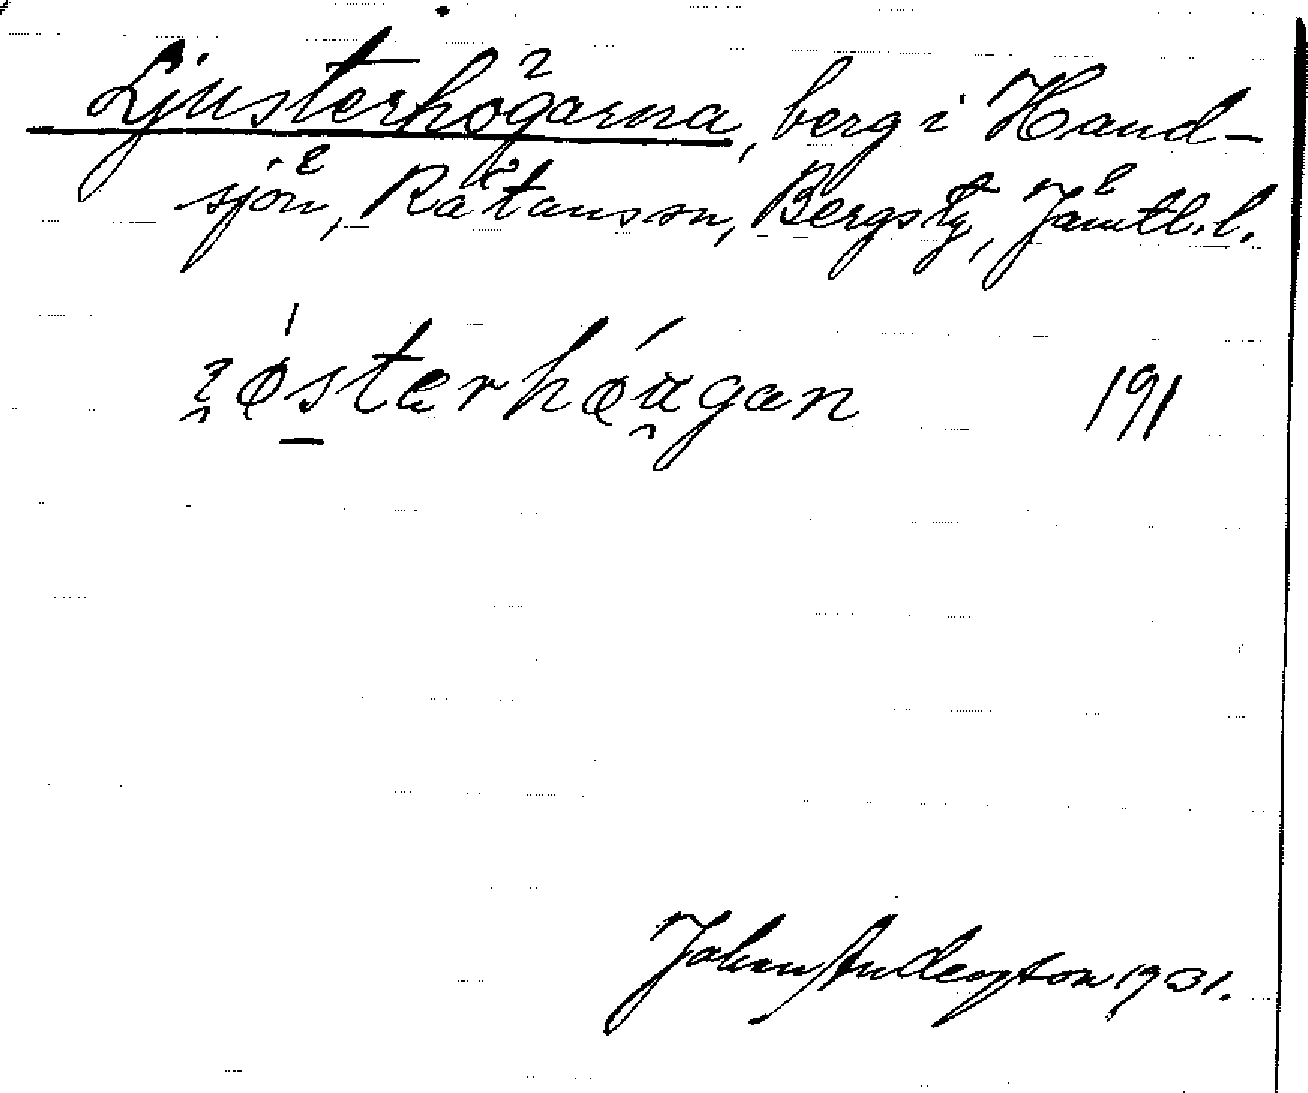 Ljusterhögarna, berg i Hand-
sjön, Rätans sn, Bergs tg, Jämtl. l.
östərhöu̯gan 191
John Andersson 1931.